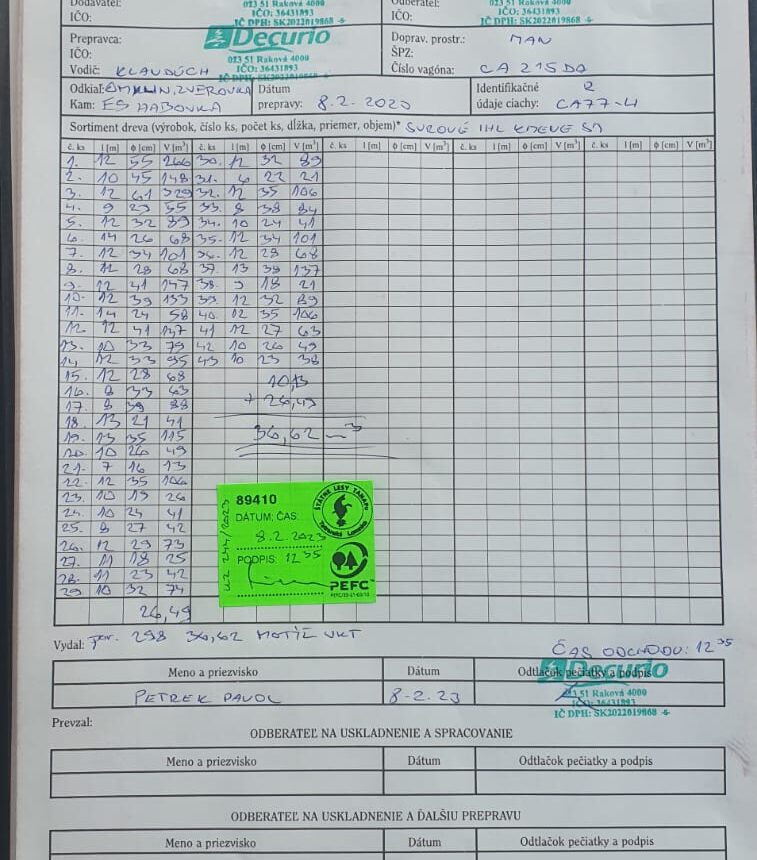 Dodávateľ:
IČO:
023 51 Raková 4000
IČO: 36431893
IČ DPH: SK2022019868 -6-
Odberateľ:
IČO:
023 51 Raková 4000
IČO: 36431893
IČ DPH: SK2022019868 -6-
Prepravca:
IČO:
Vodič: KLAUDÚCH
Decurio
023 51 Raková 4000
IČO: 36431893
IČ DPH: SK2022019868 -6-
Doprav. prostr.: MAN
ŠPZ:
Číslo vagóna: CA 215DD
Odkiaľ: OMKLIN, ZVEROVKA
Kam: ES HABOVKA
Dátum
prepravy: 8.2.2023
Identifikačné
údaje ciachy: CA77-4
Sortiment dreva (výrobok, číslo ks, počet ks, dĺžka, priemer, objem)* SUROVÉ IHL KMENE
č. ks l [m] ϕ [cm] V [m³] č. ks l [m] ϕ [cm] V [m³] č. ks l [m] ϕ [cm] V [m³] č. ks l [m] ϕ [cm] V [m³] č. ks l [m] ϕ [cm] V [m³]
1. 12 55 266 30. 12 32 89
2. 10 45 148 31. 6 22 21
3. 12 61 329 32. 12 35 106
4. 9 29 55 33. 8 38 84
5. 12 32 89 34. 10 24 41
6. 14 26 68 35. 12 34 101
7. 12 34 101 36. 12 28 68
8. 12 28 68 37. 13 39 137
9. 12 41 147 38. 9 18 21
10. 12 39 133 39. 12 32 89
11. 14 24 58 40 12 35 106
12. 12 41 147 41 12 27 63
13. 10 33 79 42 10 26 49
14 12 33 95 43 10 23 38
15. 12 28 68
16. 8 33 63
17. 8 39 88
18. 13 21 41
19. 13 35 115
20. 10 26 49
21. 7 16 13
22. 12 35 106
23. 10 19 26
24. 10 24 41
25. 8 27 42
26. 12 29 73
27. 11 18 25
28. 11 23 42
29 10 32 74
26,49
10,13
+ 26,49
36,62 m³
89410
DÁTUM; ČAS:
8.2.2023
PODPIS: 12 35
ŠTÁTNE LESY TANAPU
Tatranská Lomnica
PEFC
Vydal: por. 298 36,62 MOTÍŽ VKT
ČAS ODCHODU: 12 35
Meno a priezvisko Dátum Odtlačok pečiatky a podpis
PETREK PAVOL 8.2.23
Decurio
023 51 Raková 4000
IČO: 36431893
IČ DPH: SK2022019868 -6-
Prevzal:
ODBERATEĽ NA USKLADNENIE A SPRACOVANIE
Meno a priezvisko Dátum Odtlačok pečiatky a podpis
ODBERATEĽ NA USKLADNENIE A ĎALŠIU PREPRAVU
Meno a priezvisko Dátum Odtlačok pečiatky a podpis